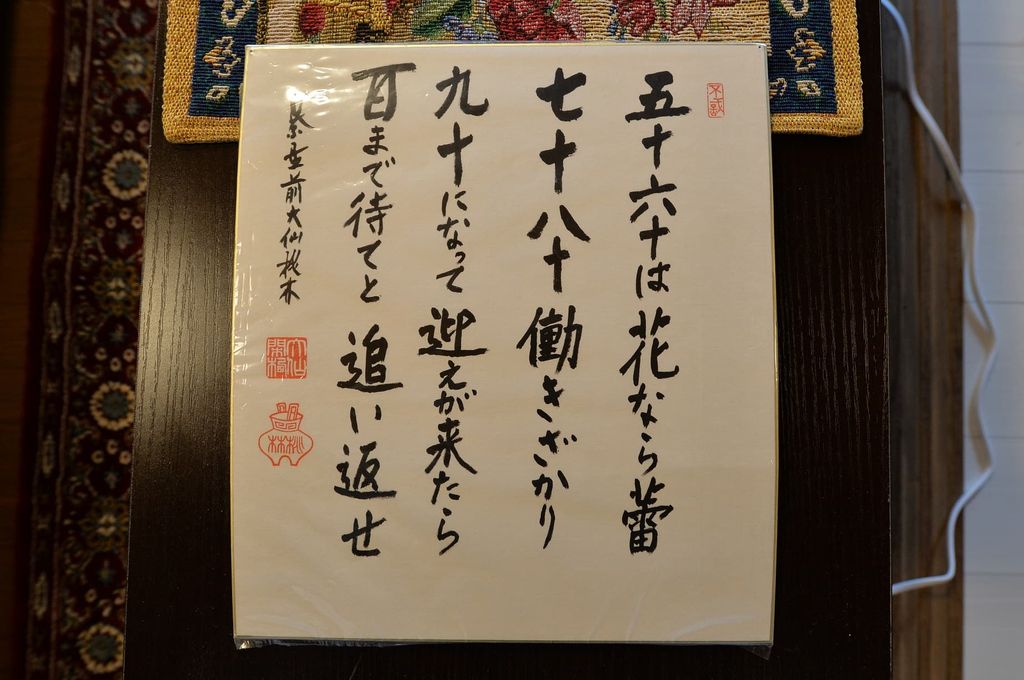 五十六十は花なら蕾
七十八十働きざかり
九十になって迎えが来たら
百まで待てと追い返せ
紫野前大仙桃林
大仙